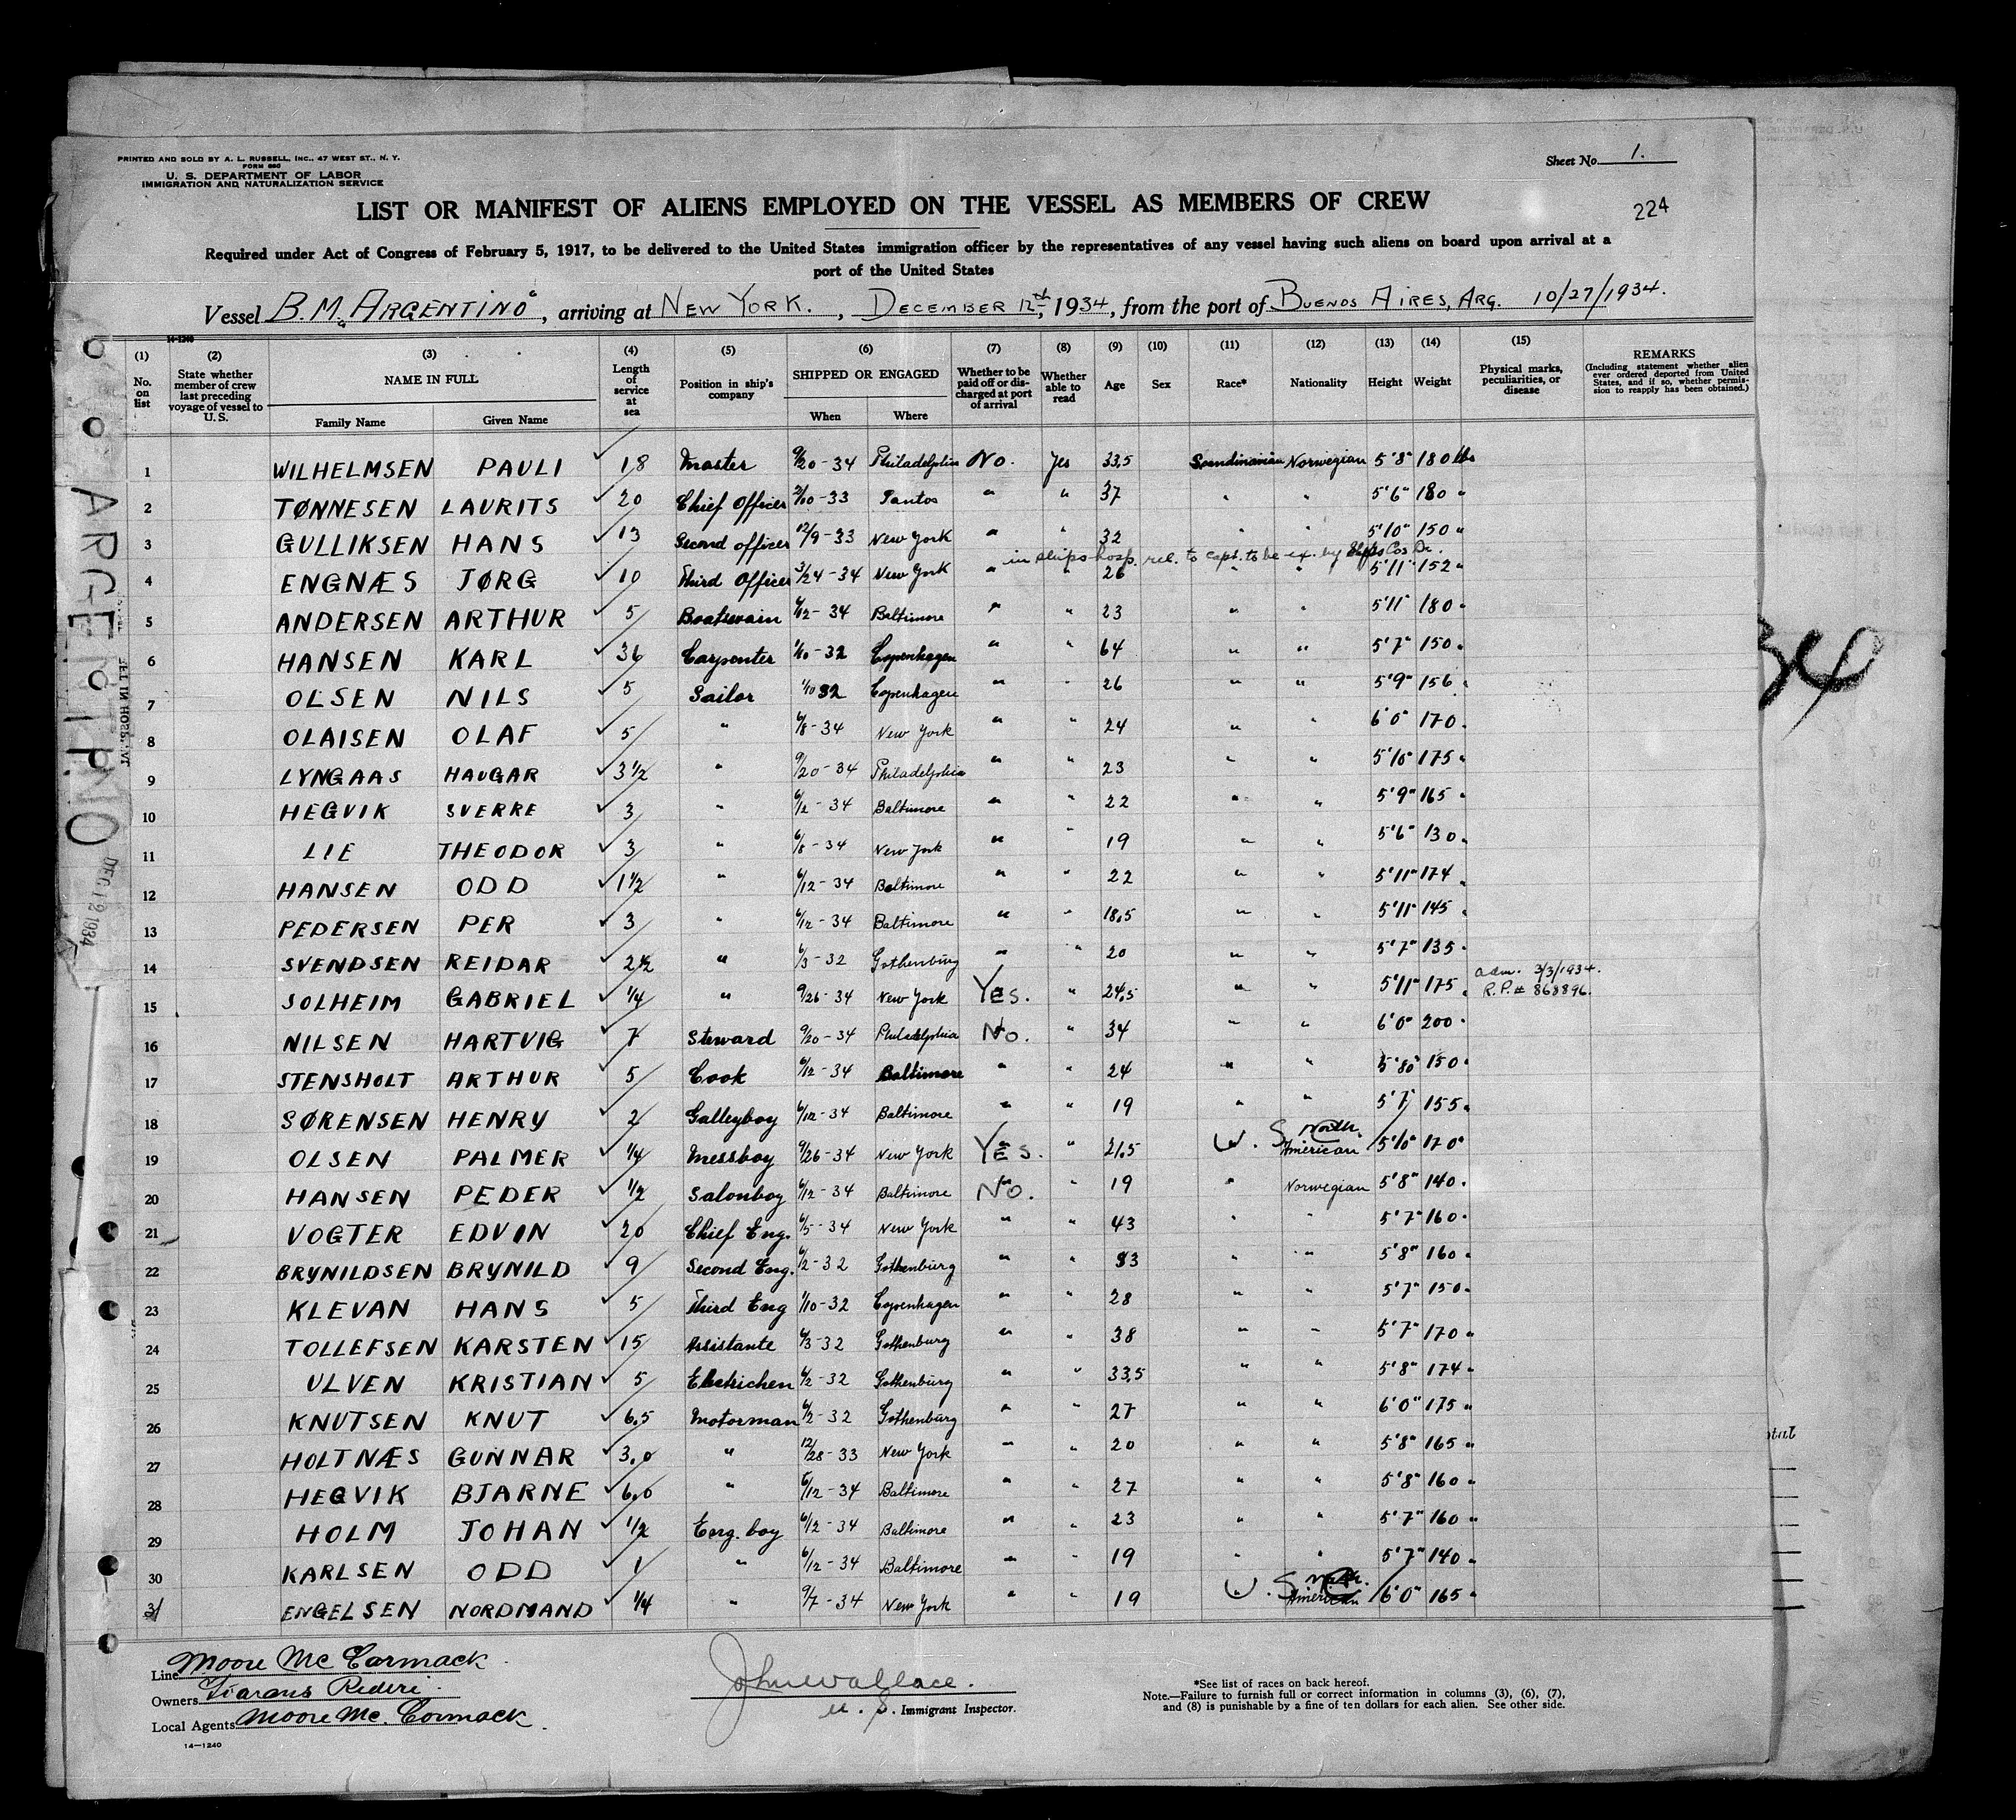 PRINTED AND SOLD BY A. L. RUSSELL, INC., 47 WEST ST., N. Y.
FORM 680
U. S. DEPARTMENT OF LABOR
IMMIGRATION AND NATURALIZATION SERVICE
Sheet No. 1.
224
LIST OR MANIFEST OF ALIENS EMPLOYED ON THE VESSEL AS MEMBERS OF CREW
Required under Act of Congress of February 5, 1917, to be delivered to the United States immigration officer by the representatives of any vessel having such aliens on board upon arrival at a
port of the United States
Vessel B.M. "ARGENTINO", arriving at NEW YORK., DECEMBER 12, 1934, from the port of BUENOS AIRES, ARG. 10/27/1934.
14-1240
(1) No. on list (2) State whether member of crew last preceding voyage of vessel to U. S. (3) NAME IN FULL Family Name Given Name (4) Length of service at sea (5) Position in ship's company (6) SHIPPED OR ENGAGED When Where (7) Whether to be paid off or discharged at port of arrival (8) Whether able to read (9) Age (10) Sex (11) Race* (12) Nationality (13) Height (14) Weight (15) Physical marks, peculiarities, or disease REMARKS (Including statement whether alien ever ordered deported from United States, and if so, whether permission to reapply has been obtained.)
1 WILHELMSEN PAULI 18 Master 9/20-34 Philadelphia No. Yes 33,5 Scandinavian Norwegian 5'8" 180 lbs
2 TØNNESEN LAURITS 20 Chief Officer 2/10-33 Santos " " 37 " " 5'6" 180 "
3 GULLIKSEN HANS 13 Second officer 12/9-33 New York " " 32 " " 5'10" 150 "
in ships hosp. rel. to capt. to be ex. by Ships Cos Dr.
4 ENGNÆS JØRG 10 Third Officer 3/24-34 New York " " 26 " " 5'11" 152 "
5 ANDERSEN ARTHUR 5 Boatswain 6/12-34 Baltimore " " 23 " " 5'11" 180 "
6 HANSEN KARL 36 Carpenter 1/10-32 Copenhagen " " 64 " " 5'7" 150 "
7 OLSEN NILS 5 Sailor 1/10 32 Copenhagen " " 26 " " 5'9" 156 "
8 OLAISEN OLAF 5 " 6/8-34 New York " " 24 " " 6'0" 170 "
9 LYNGAAS HAUGAR 3 1/2 " 9/20-34 Philadelphia " " 23 " " 5'10" 175 "
10 HEGVIK SVERRE 3 " 6/12-34 Baltimore " " 22 " " 5'9" 165 "
11 LIE THEODOR 3 " 6/8-34 New York " " 19 " " 5'6" 130 "
12 HANSEN ODD 1 1/2 " 6/12-34 Baltimore " " 22 " " 5'11" 174 "
13 PEDERSEN PER 3 " 6/12-34 Baltimore " " 18,5 " " 5'11" 145 "
14 SVENDSEN REIDAR 2 1/2 " 6/3-32 Gothenburg " " 20 " " 5'7" 135 "
15 SOLHEIM GABRIEL 1/4 " 9/26-34 New York Yes. " 24,5 " " 5'11" 175 " adm. 3/3/1934. R.P.# 868896.
16 NILSEN HARTVIG 7 Steward 9/20-34 Philadelphia No. " 34 " " 6'0" 200 "
17 STENSHOLT ARTHUR 5 Cook 6/12-34 Baltimore " " 24 " " 5'80" 150 "
18 SØRENSEN HENRY 2 Galleyboy 6/12-34 Baltimore " " 19 " " 5'7" 155 "
19 OLSEN PALMER 1/4 Messboy 9/26-34 New York Yes. " 21,5 U. S. North. American 5'10" 170 "
20 HANSEN PEDER 1/2 Salonboy 6/12-34 Baltimore No. " 19 " Norwegian 5'8" 140 "
21 VOGTER EDVIN 20 Chief Eng. 6/5-34 New York " " 43 " " 5'7" 160 "
22 BRYNILDSEN BRYNILD 9 Second Eng. 6/2-32 Gothenburg " " 33 " " 5'8" 160 "
23 KLEVAN HANS 5 Third Eng 1/10-32 Copenhagen " " 28 " " 5'7" 150 "
24 TOLLEFSEN KARSTEN 15 Assistante 6/3-32 Gothenburg " " 38 " " 5'7" 170 "
25 ULVEN KRISTIAN 5 Electrichen 6/2-32 Gothenburg " " 33,5 " " 5'8" 174 "
26 KNUTSEN KNUT 6,5 Motorman 6/2-32 Gothenburg " " 27 " " 6'0" 175 "
27 HOLTNÆS GUNNAR 3,0 " 12/28-33 New York " " 20 " " 5'8" 165 "
28 HEGVIK BJARNE 6,0 " 6/12-34 Baltimore " " 27 " " 5'8" 160 "
29 HOLM JOHAN 1/2 Eng. boy 6/12-34 Baltimore " " 23 " " 5'7" 160 "
30 KARLSEN ODD 1 " 6/12-34 Baltimore " " 19 " " 5'7" 140 "
31 ENGELSEN NORDMAND 1/4 " 9/7-34 New York " " 19 U. S. North. American 6'0" 165 "
Line Moore Mc Cormack
Owners Fearnes Rederi
Local Agents Moore Mc. Cormack
14—1240
John Wallace.
U. S. Immigrant Inspector.
*See list of races on back hereof.
Note.—Failure to furnish full or correct information in columns (3), (6), (7),
and (8) is punishable by a fine of ten dollars for each alien. See other side.
ARGENTINO
DEC 12 1934
34